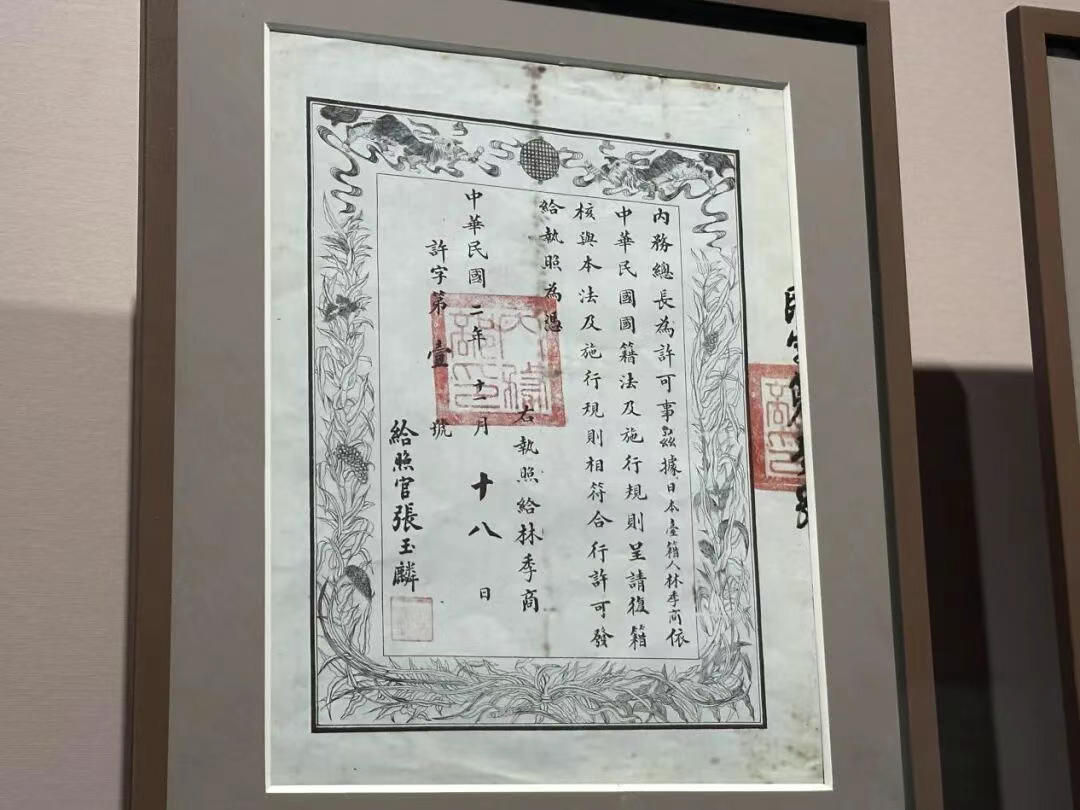 內務總長為許可事茲據日本臺籍人林季商依
中華民國國籍法及施行規則呈請復籍
核與本法及施行規則相符合行許可發
給執照為憑
右執照給林季商
中華民國二年十一月十八日
許字第壹號
給照官張玉麟